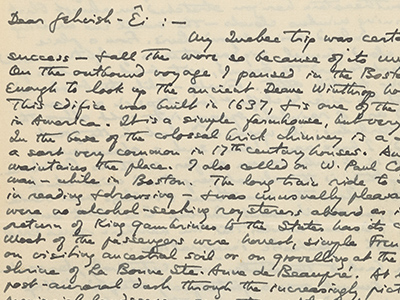 Dear Jehvish-Êi :—
My Quebec trip was certa
success — & all the more so because of its un
On the outbound voyage I paused in the Bosto
Enough to look up the ancient Deane Winthrop ho
This edifice was built in 1637, & is one of the
in America. It is a simple farmhouse, but very
In the base of the colossal brick chimney is a
a sort very common in 17th century houses. An
maintains the place. I also called on W. Paul Co
man — while in Boston. The long train ride to
in reading & drowsing — & was unusually pleasa
were no alcohol-seeking roysterers aboard as i
return of King Gambrinus to the States has its
Most of the passengers were honest, simple Fren
on visiting ancestral soil or on grovelling at the
shrine of La Bonne Ste. Anne de Beaupré. At
post-auroral dash through the increasingly pict